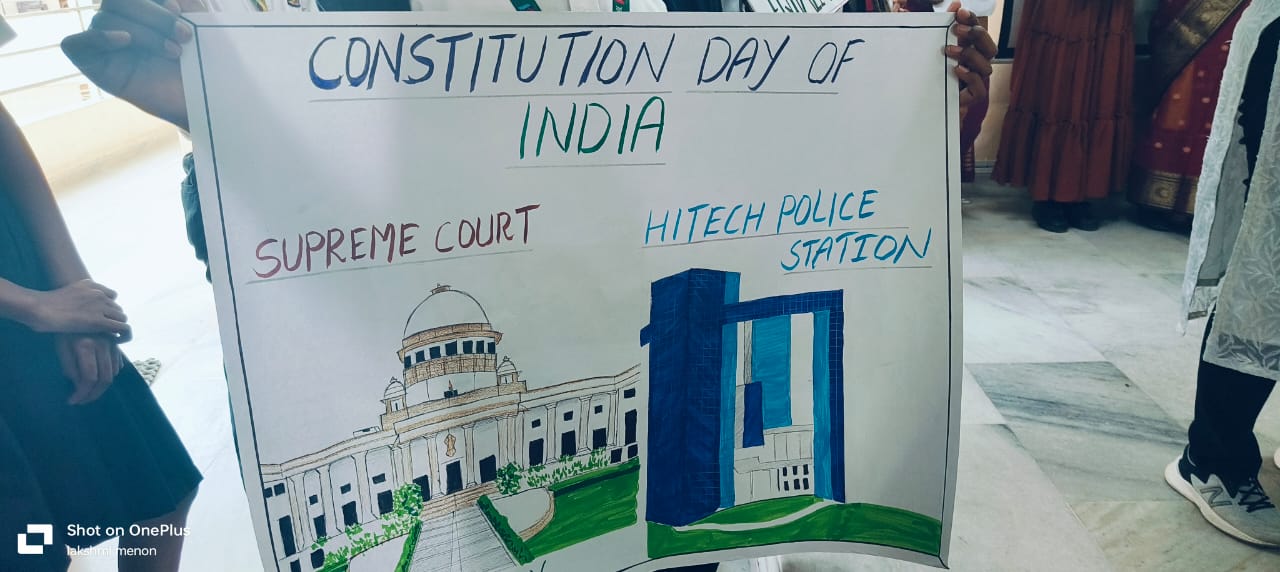 CONSTITUTION DAY OF
INDIA
SUPREME COURT
HITECH POLICE
STATION
Shot on OnePlus
lakshmi menon